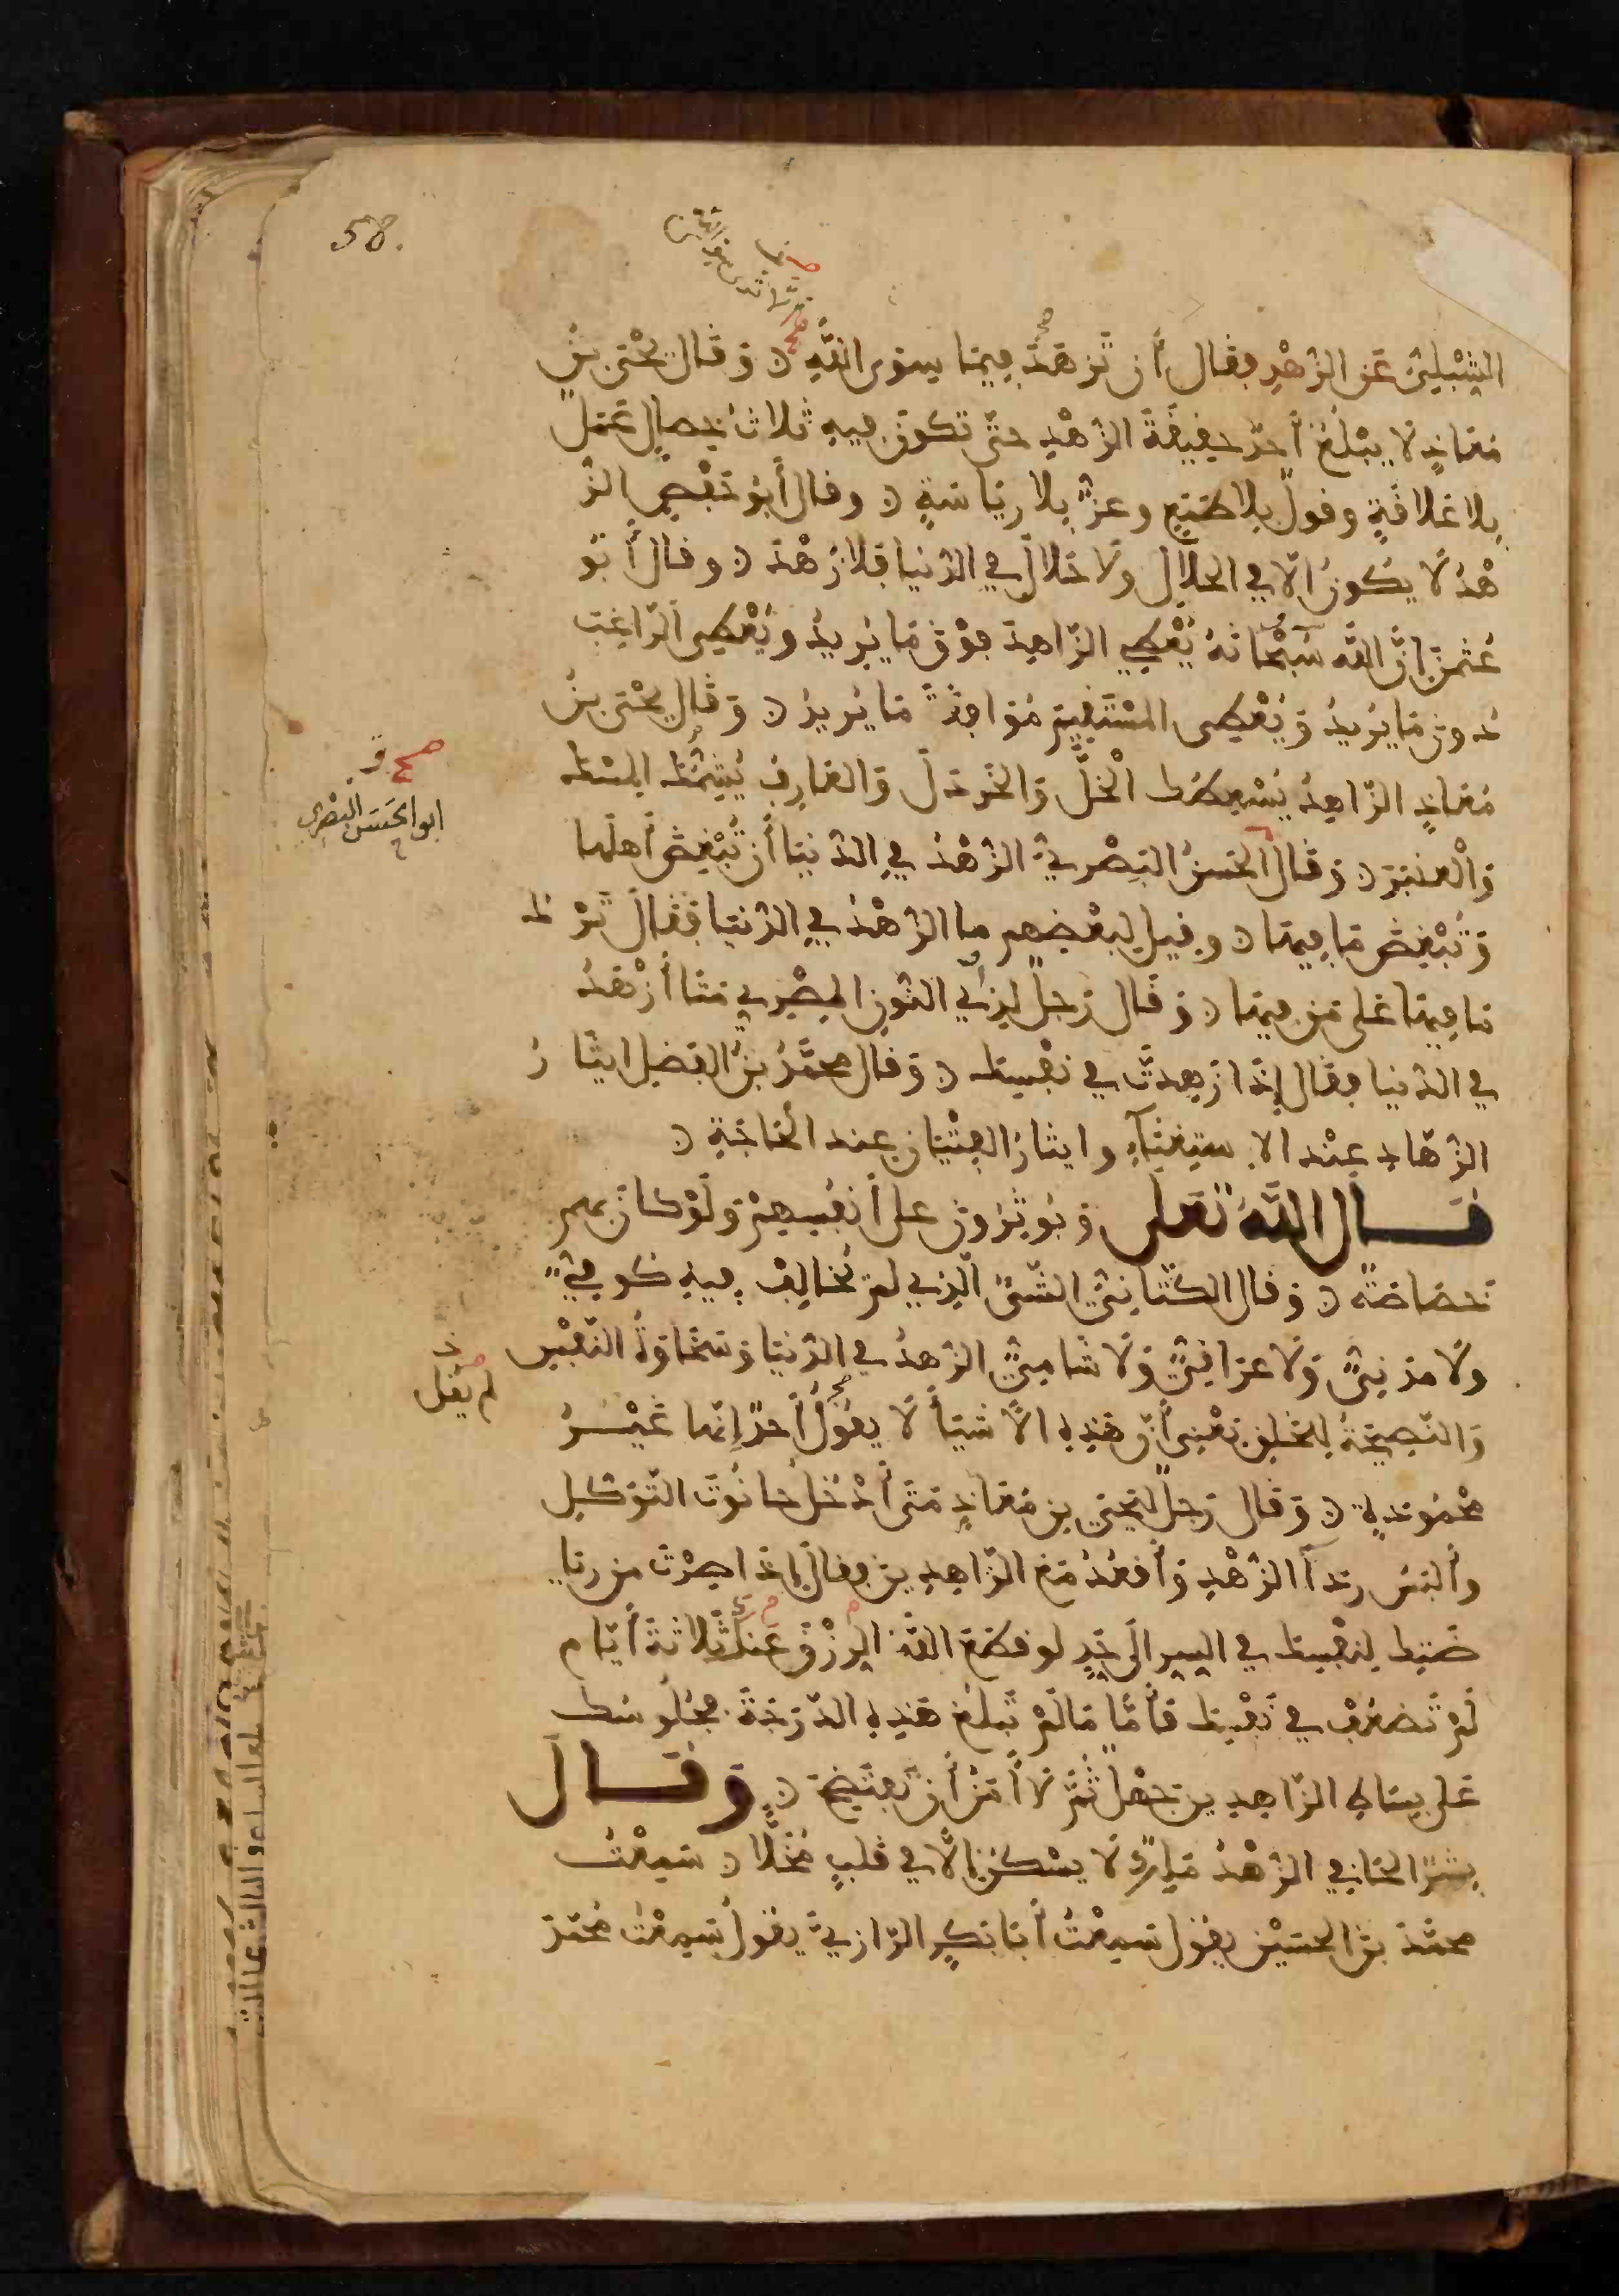 58.
الشبلي عن الزهد فقال أن تزهد فيما سوى الله وقال يحيى بن
معاذ لا يبلغ أحد حقيقة الزهد حتى تكون فيه ثلاث خصال عمل
بلا علاقة وقول بلا طمع وعز بلا رياسة وقال أبو حفص الز
هد لا يكون الا في الحلال ولا حلال في الدنيا فلا زهد وقال أبو
عثمن ان الله سبحانه يعطي الزاهد فوق ما يريد ويعطي الراغب
دون ما يريد ويعطي المستقيم موافقة ما يريد وقال يحيى بن
معاذ الزاهد يسعطك الخل والخردل والعارف يشمك المسك
والعنبر وقال الحسن البصري الزهد في الدنيا أن تبغض أهلها
وتبغض ما فيها وقيل لبعضهم ما الزهد في الدنيا فقال ترك
ما فيها على من فيها وقال رجل لذي النون المصري متى أزهد
في الدنيا فقال إذا زهدت في نفسك وقال محمد بن الفضل ايثار
الزهاد عند الاستغناء وايثار الفتيان عند الحاجة
قال الله تعلى ويوثرون على أنفسهم ولو كان بهم
خصاصة وقال الكتاني الشئ الذي لم يخالف فيه كوفي
ولا مدني ولا عراقي ولا شامي الزهد في الدنيا وسخاوة النفس
والنصيحة للخلق يعني أن هذه الاشيأ لا يقول أحد إنها غير
محمودة وقال رجل ليحيى بن معاذ متى أدخل حانوت التوكل
وألبس ردأ الزهد وأقعد مع الزاهدين فقال إذا صرت من ريا
ضتك لنفسك في السر الى حد لو قطع الله الرزق عنك ثلاثة أيام
لم تضعف في نفسك فأما ما لم تبلغ هذه الدرجة فجلوسك
على بساط الزاهدين جهل ثم لا أمن أن تفتضح وقال
بشر الحافي الزهد ملك لا يسكن إلا في قلب مخلا سمعت
محمد بن الحسين يقول سمعت أبا بكر الرازي يقول سمعت محمد
صح
ابو الحسن البصري
لم يقل